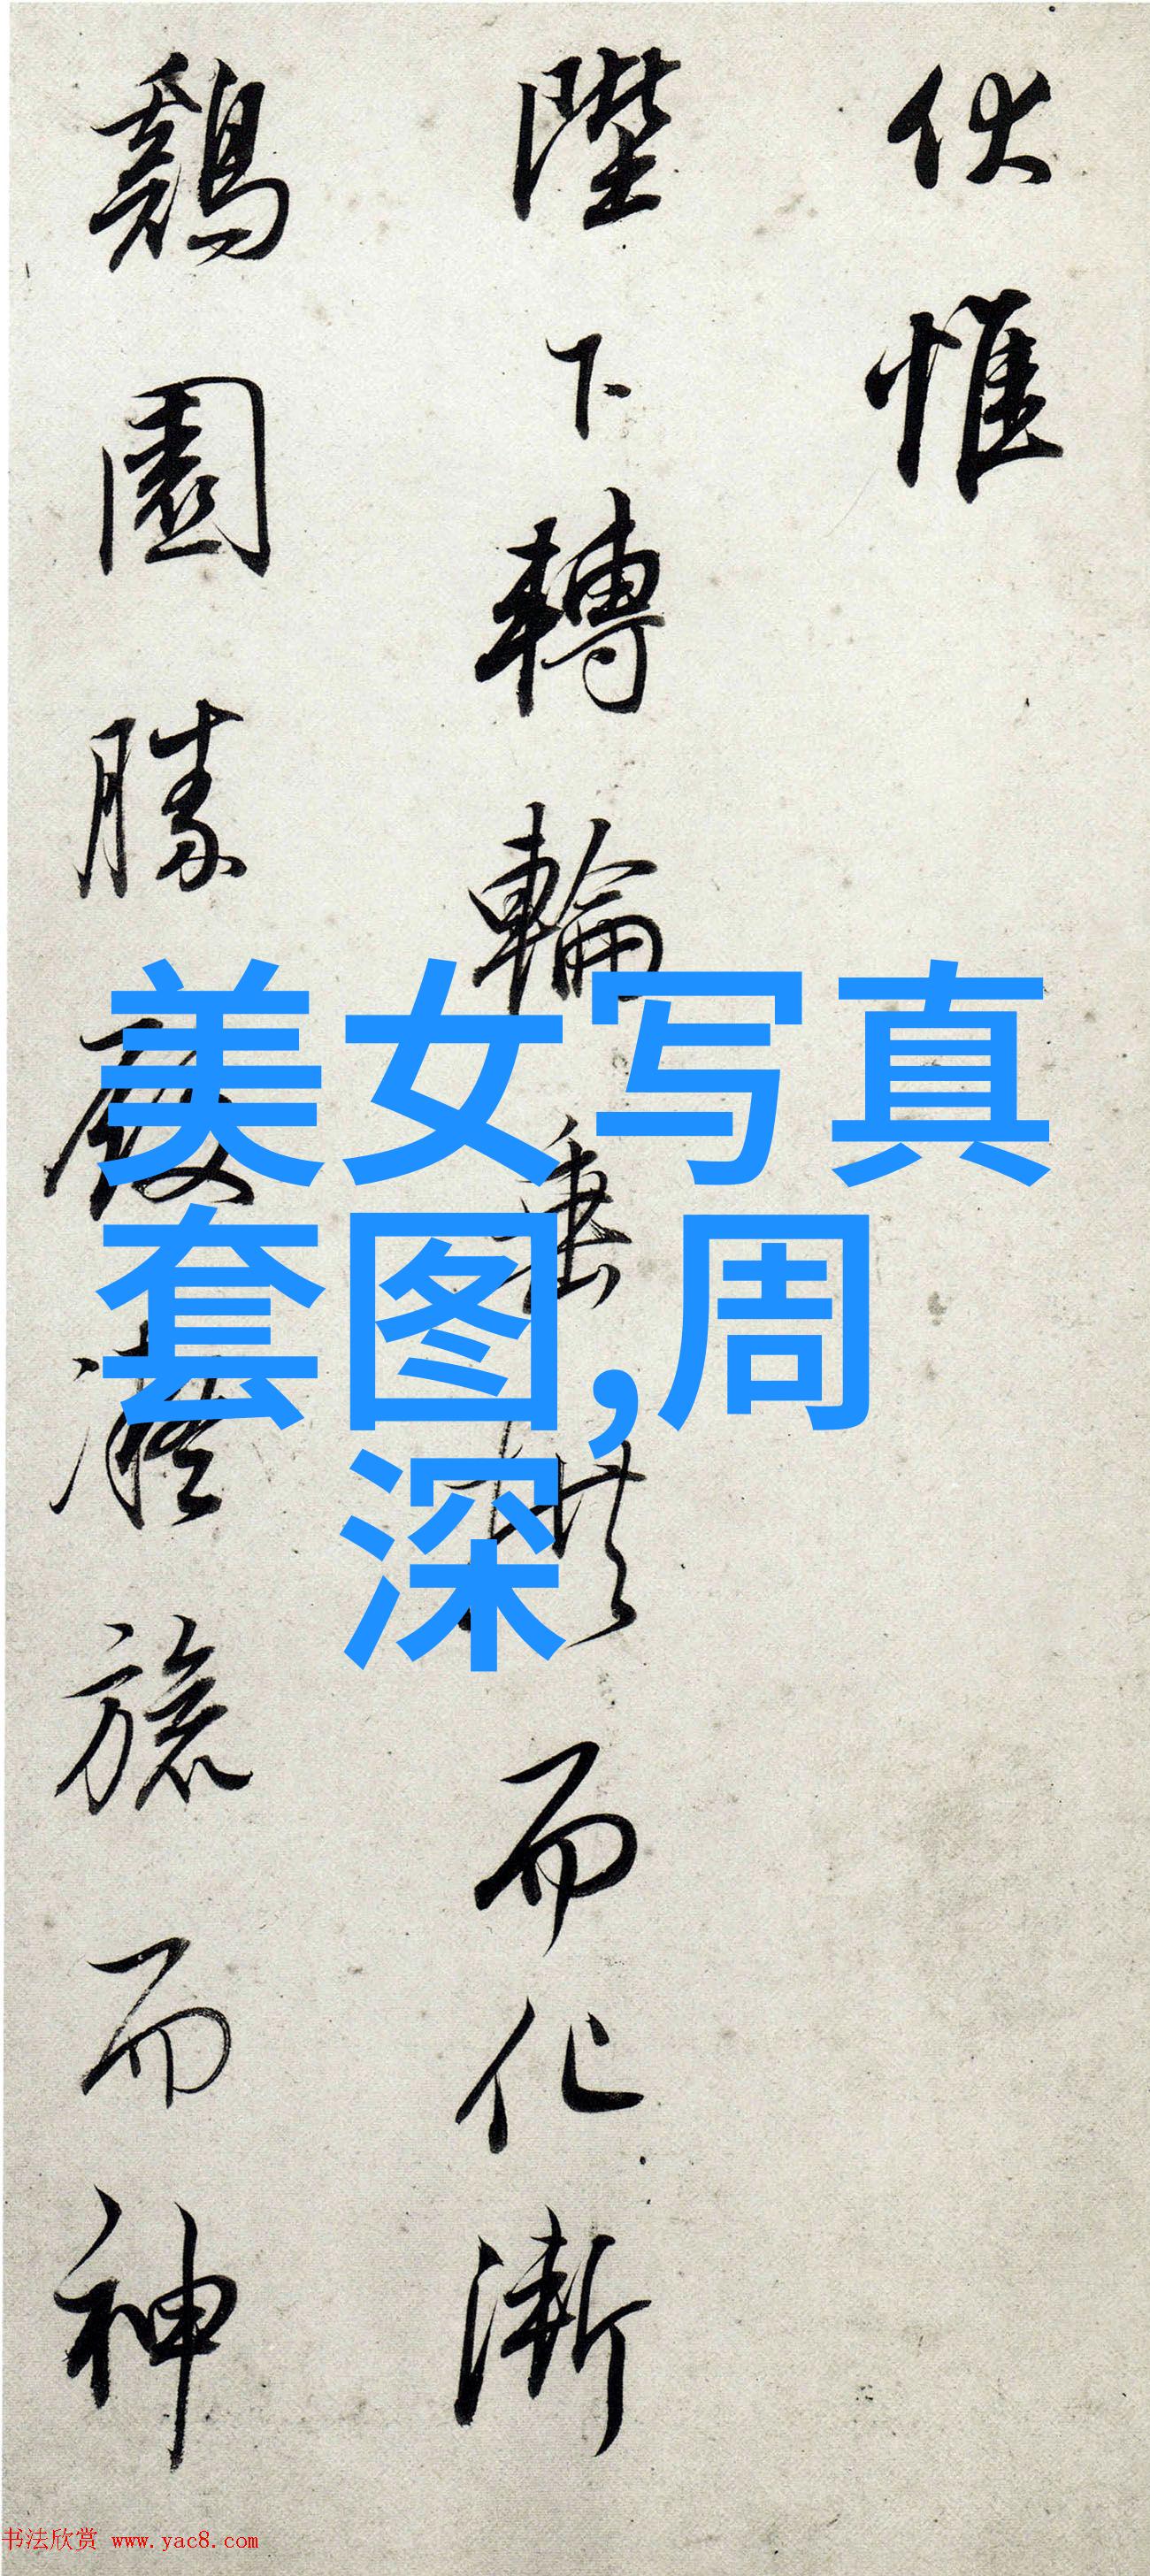 伏惟
陛下轉輪垂拱而化漸
鷄園勝殿凝旒而神
美女写真
套图,周
深
书法欣赏 www.yac8.com